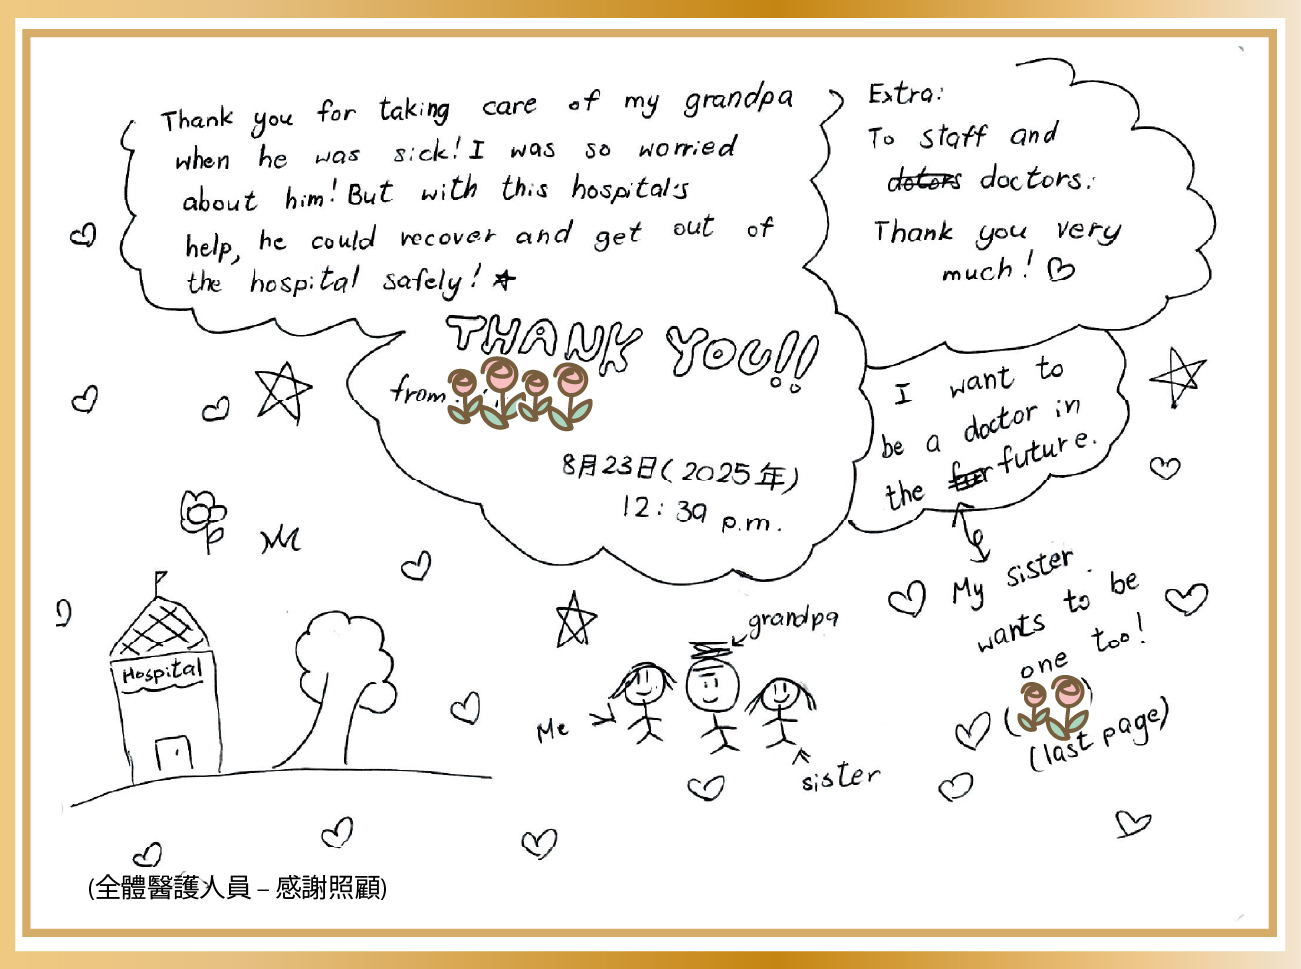 Thank you for taking care of my grandpa
when he was sick! I was so worried
about him! But with this hospital's
help, he could recover and get out of
the hospital safely!
THANK YOU!!
from
8月23日(2025年)
12:39 p.m.
Extra:
To staff and
dotors doctors.
Thank you very
much!
I want to
be a doctor in
the future.
My sister
wants to be
one too!
(
(last page)
Hospital
grandpa
Me
sister
(全體醫護人員 – 感謝照顧)